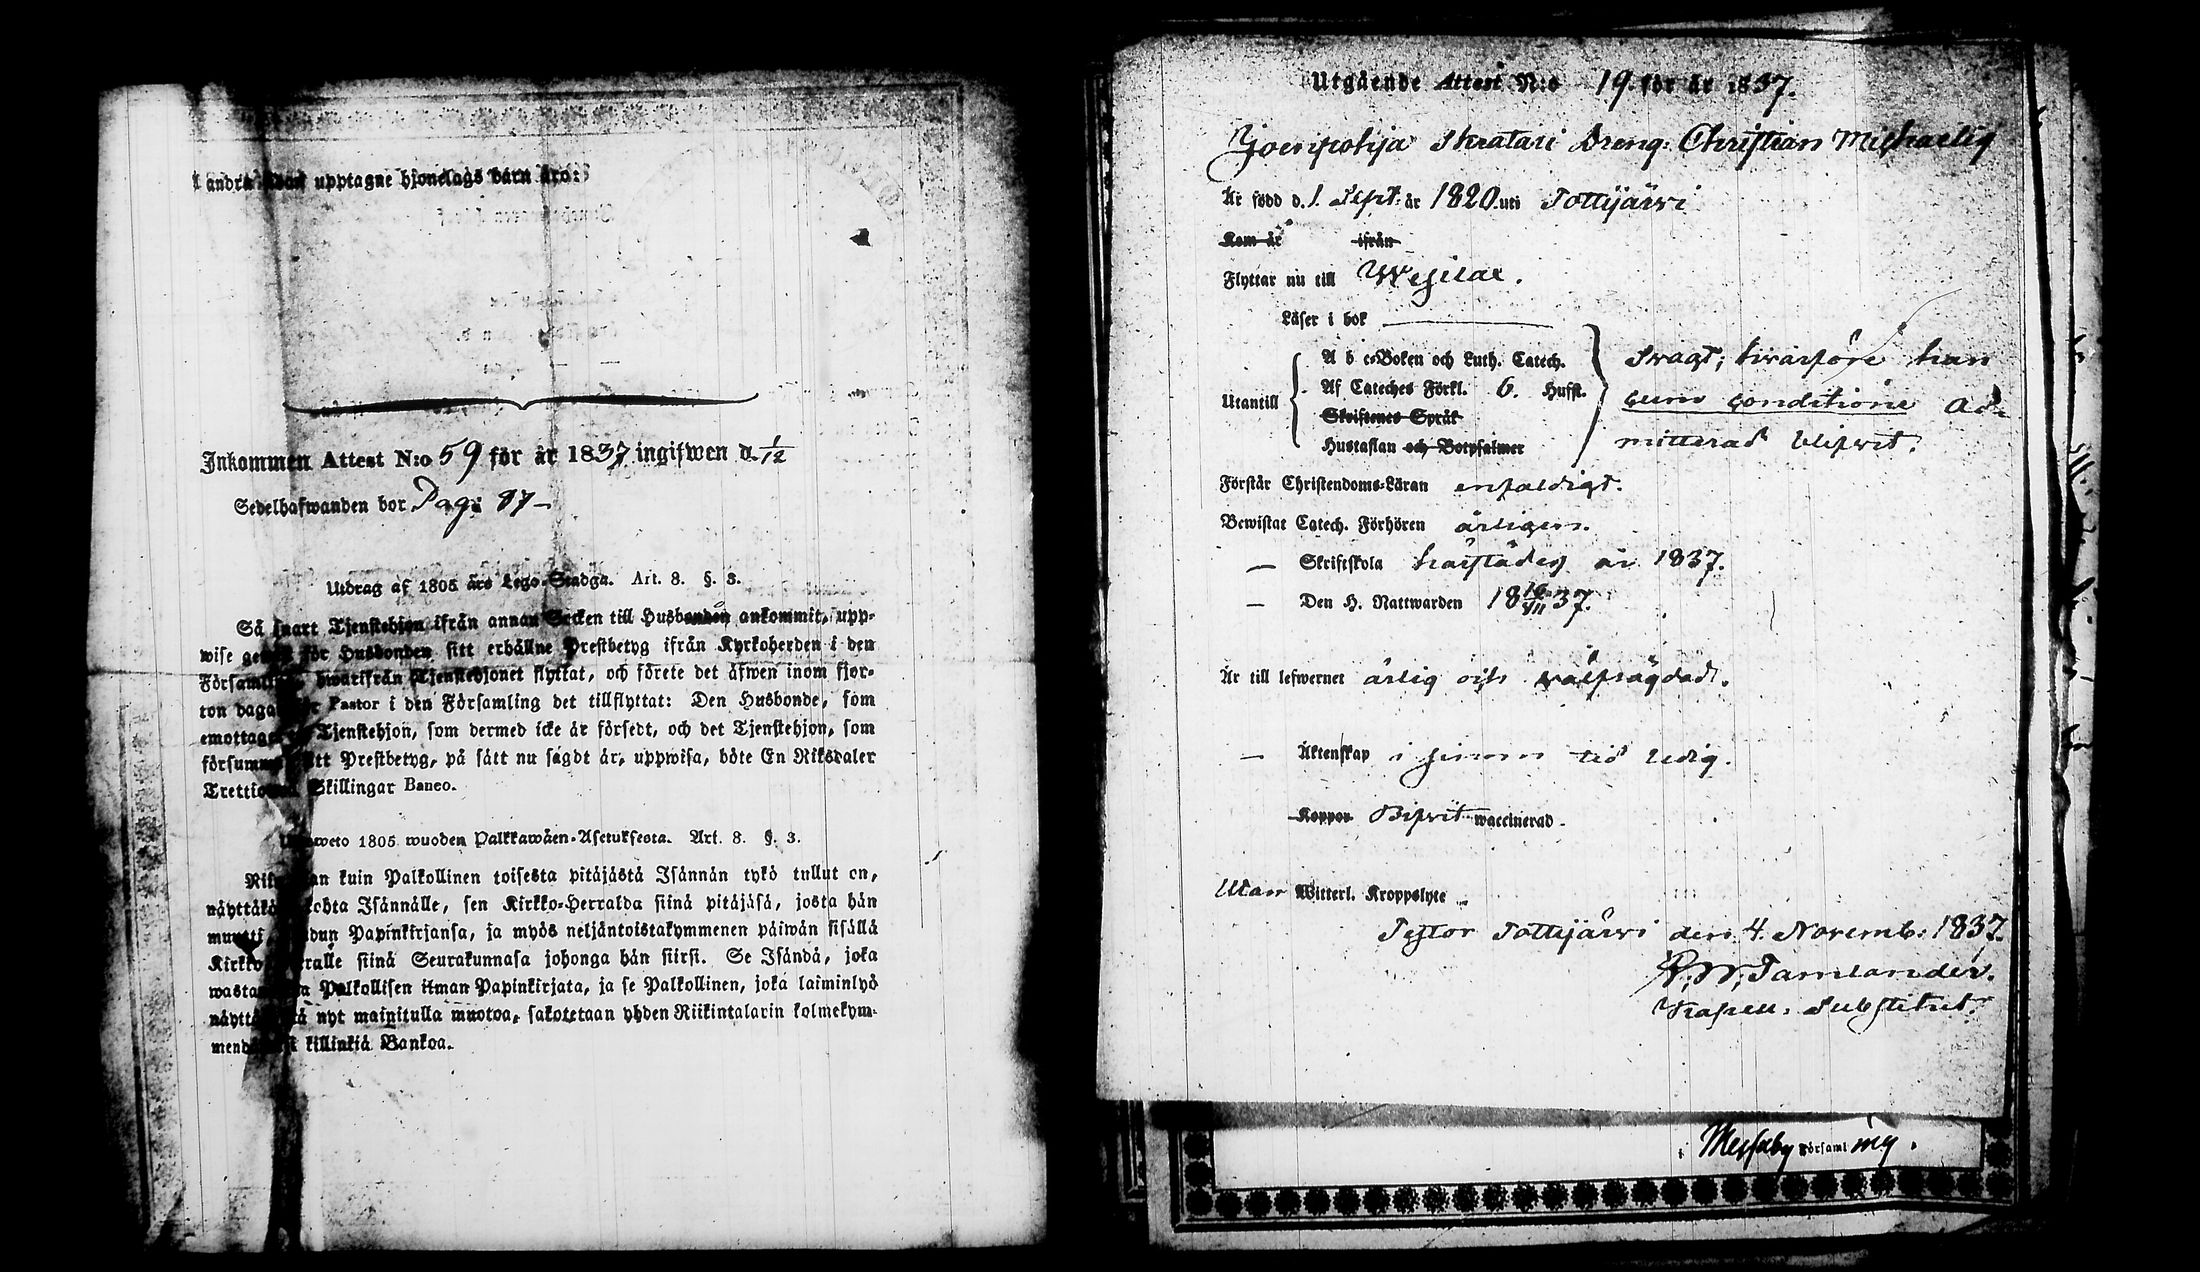 andra upptagne hjonelags barn äro:
Inkommen Attest N:o 59 för år 1837 ingifwen d. 1/12
Sedelhafwanden bor Pag: 87
Utdrag af 1805 års Lego-Stadga. Art. 8. §. 3.
Så snart Tjenstehjon ifrån annan Socken till Husbonden ankommit, upp-
wise genast för Husbonden sitt erhållne Prestbetyg ifrån Kyrkoherden i den
Församling, hwarifrån Tjenstehjonet flyttat, och förete det äfwen inom fjor-
ton dagar för Pastor i den Församling det tillflyttat: Den Husbonde, som
emottager Tjenstehjon, som dermed icke är försedt, och det Tjenstehjon, som
försummar sitt Prestbetyg, på sätt nu sagdt är, uppwisa, böte En Riksdaler
Trettio Skillingar Banco.
Ulosweto 1805 wuoden Palkkawäen-Asetuksesta. Art. 8. §. 3.
Niin kuin Palkollinen toisesta pitäjästä Isännän tykö tullut on,
näyttäkön kohta Isännälle, sen Kirkko-Herralda siinä pitäjäsä, josta hän
muutti, saadun Papinkirjansa, ja myös neljäntoistakymmenen päiwän sisällä
Kirkkoherralle siinä Seurakunnasa johonga hän siirsi. Se Isändä, joka
wastanottaa Palkollisen ilman Papinkirjata, ja se Palkollinen, joka laiminlyö
näyttä sitä nyt mainitulla muotoa, sakotetaan yhden Riikintalarin kolmekym-
mendä killinkiä Bankoa.
Utgående Attest N:o 19. för år 1837.
Dreng: Christian Michaelis
Är född d. 1. Sept. år 1820. uti Tottijärvi
Kom år ifrån
Flyttar nu till Wesilax.
Läser i bok
Utantill
A b c-Boken och Luth. Catech.
Af Cateches Förkl. 6. Hufst.
Skriftenes Språk
Hustaflan och Botpsalmer
Svagt; hvarföre han
cum conditione ad-
mitterad blifvit.
Förstår Christendoms-Läran enfaldigt.
Bewistat Catech. Förhören årligen.
— Skriftskola härstädes år 1837.
— Den H. Nattwarden 18 16/VII 37.
Är till lefwernet ärlig och välfrägdad.
— Äktenskap i sinom tid ledig.
Koppor Blifvit waccinerad.
Utan Witterl. Kroppslyte
Testor Tottijärvi den 4. Novemb: 1837.
Tamlander.
Kapell: Substitut.
i Messuby Församling.